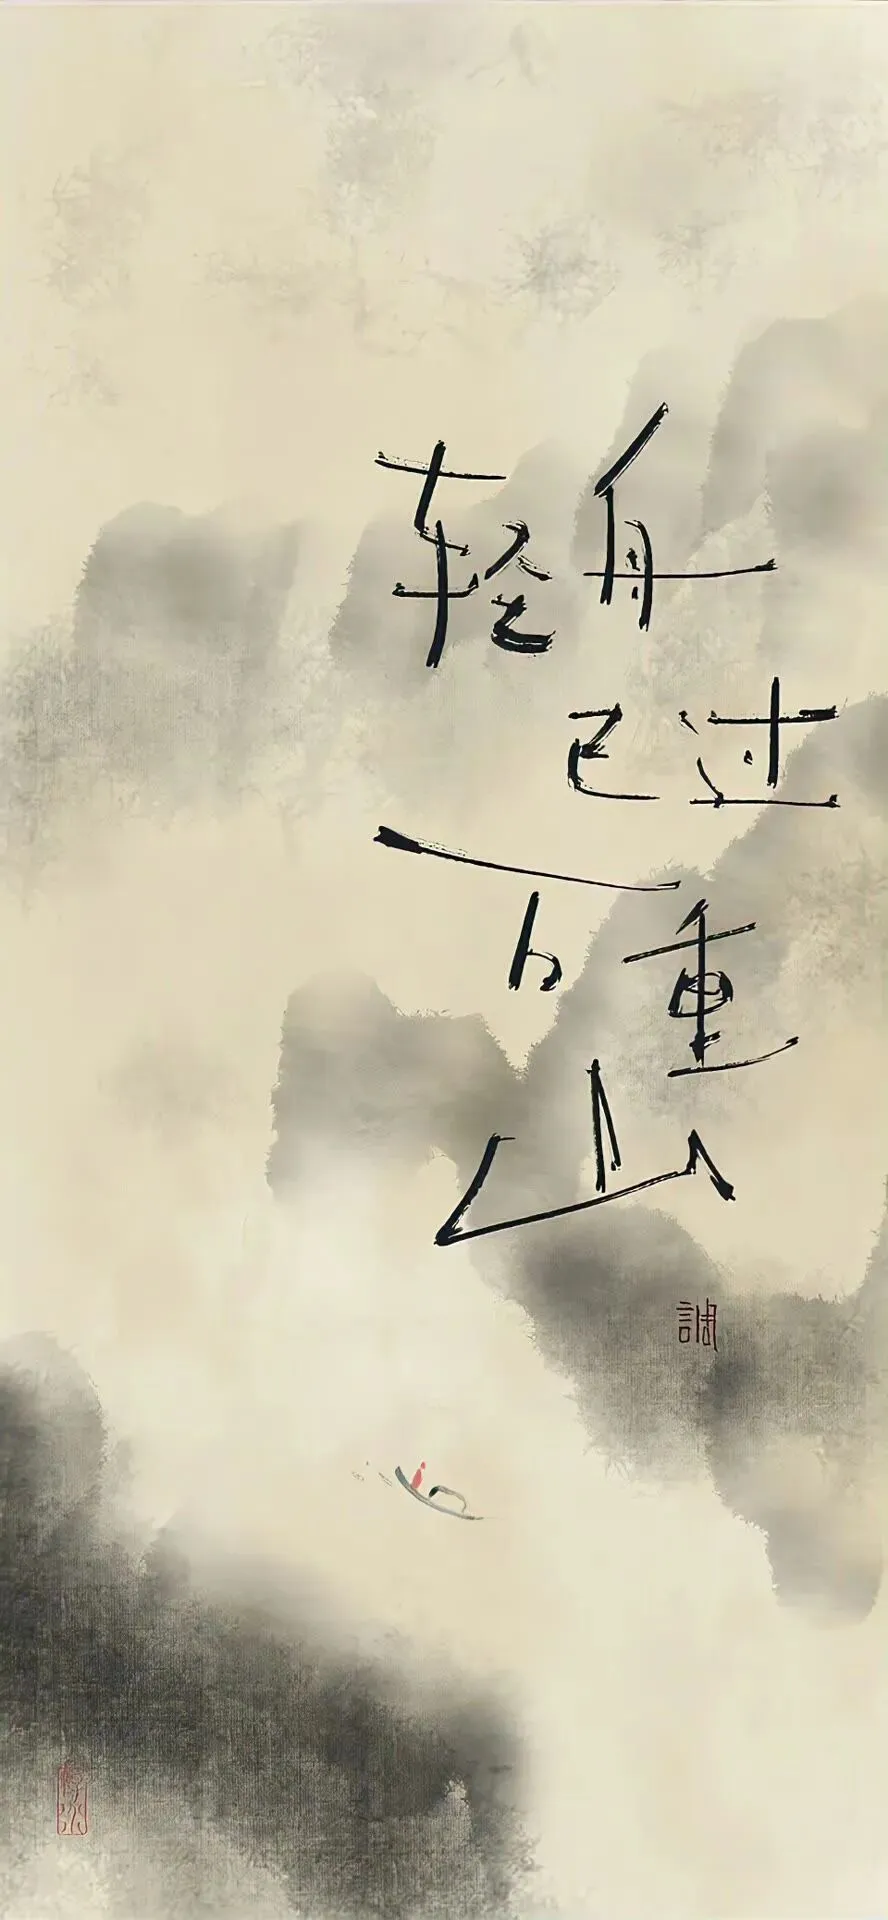 轻舟
已过
百重
山